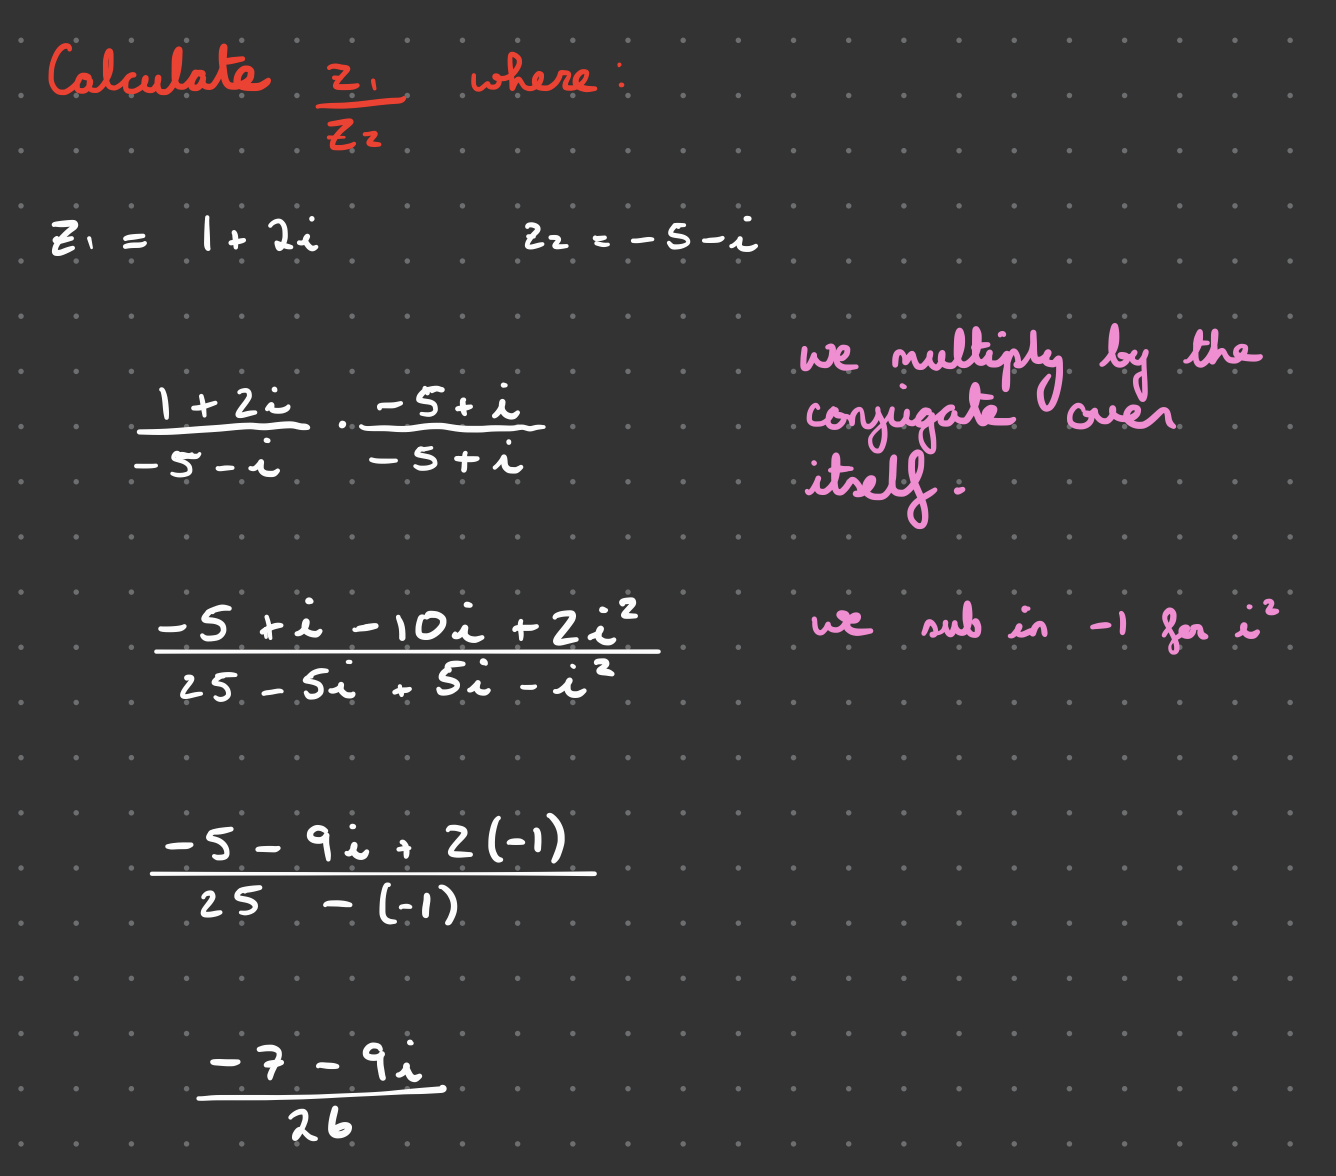 Calculate z₁/z₂ where:
z₁ = 1 + 2i    z₂ = -5 - i
we multiply by the
conjugate over
itself.
(1 + 2i)/(-5 - i) · (-5 + i)/(-5 + i)
(-5 + i - 10i + 2i²)/(25 - 5i + 5i - i²)
we sub in -1 for i²
(-5 - 9i + 2(-1))/(25 - (-1))
(-7 - 9i)/26